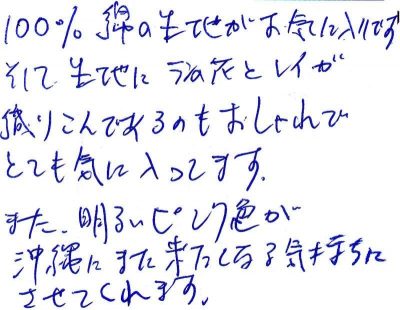 100% 綿の生地がお気に入りです
そして 生地に ラの花とレイが
織りこんであるのもおしゃれで
とても気に入ってます。
また、明るいピンク色が
沖縄にまた来たくなる気持ちに
させてくれます。